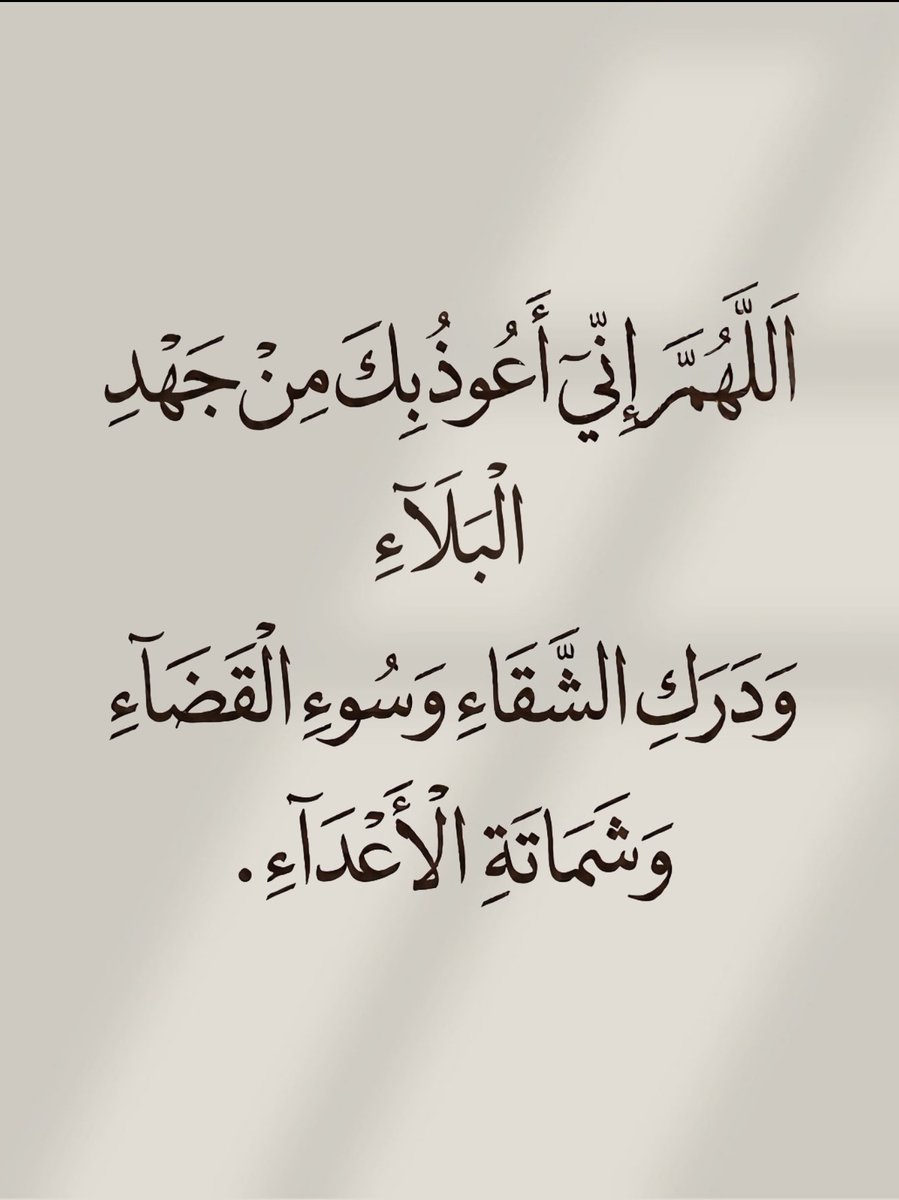 اَللَّهُمَّ إِنِّيٓ أَعُوذُ بِكَ مِنْ جَهْدِ
الْبَلَآءِ
وَدَرَكِ الشَّقَاءِ وَسُوءِ الْقَضَآءِ
وَشَمَاتَةِ الْأَعْدَآءِ.